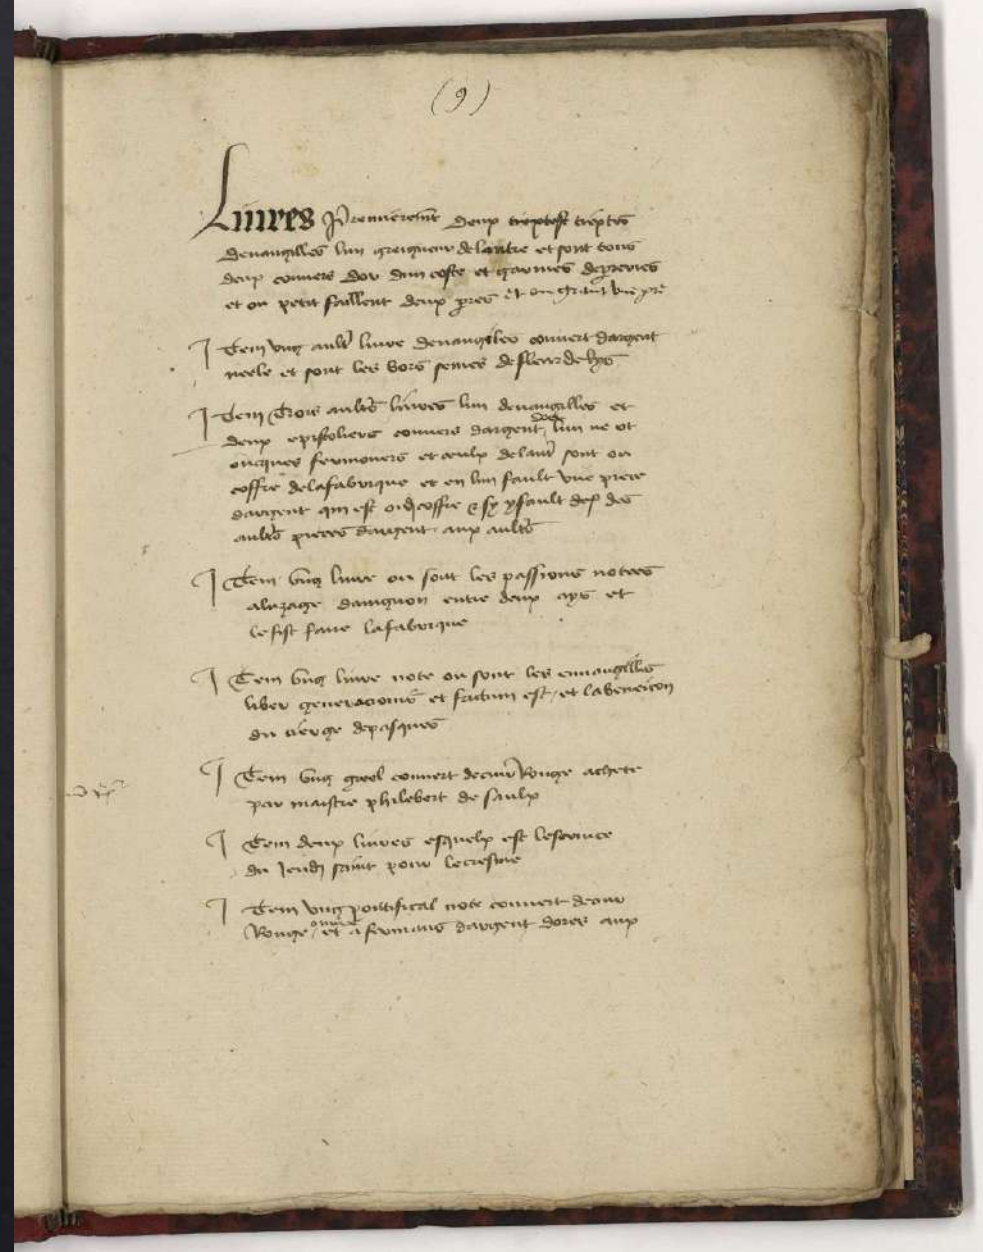 (9)
Livres Premierement deux textes
devangilles lun greigneur de lautre et sont tous
deux couvers dor dun coste et garnies de pierres
et ou petit faillent deux pres et ou grant une pre
Item ung aultre livre devangiles couvert dargent
neele et sont les bors semes de fleur de lys
Item Trois aultres livres lun devangilles et
deux epistoliers couvers dargent dore lun ne ot
oncques fermouers et ceulx de lautre sont ou
coffre de la fabrique et en lun fault une piece
dargent qui est oud coffre & sy y fault des
aultres pieces dargent aux aultres
Item ung livre ou sont les passions notees
a lusage davignon entre deux ays et
le fist faire la fabrique
Item ung livre note ou sont les euvangilles
liber generacionis et factum est et la beneicon
du cierge de pasques
Item ung greel couvert de cuir Rouge achete
par maistre philebert de saulx
Item deux livres esquelx est le service
du Jeudi saint pour le cresme
Item ung pontifical note couvert de cuir
Rouge et a fermaus dargent dores aux